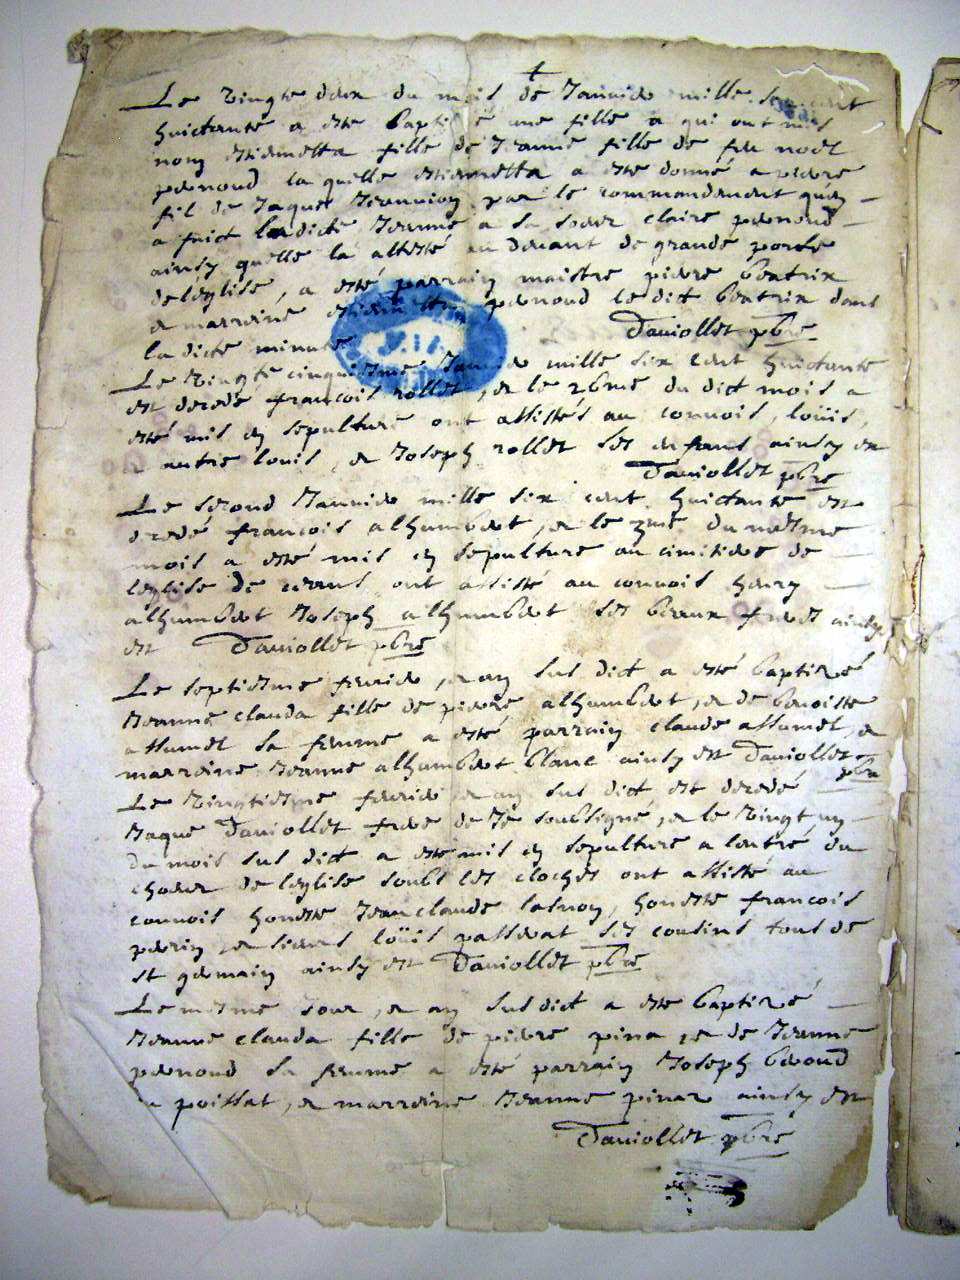 Le vingte deux du mois de Januier mille six cent
huictante a esté baptisé une fille a qui ont mis
nom estiennetta fille de Jeanne fille de feu noël
pernoud la quelle estiennetta a esté donné a pierre
fil de Jaques par le commandement quen
a faict la dicte Jeanne a sa soeur claire pernoud
ainsy quelle la altesté au deuant de grande porte
de leglise, a esté parrain maistre pierre beatrix
et marreine pernoud le dict beatrix dans
la dicte minute Dauiollet pbre
Le vingte cinquiesme mille six cent huictante
est decedé francois rollet, et le 26me du dict mois a
esté mis en sepulture ont assistés au conuois, loüis,
autre louis, et Joseph rollet ses enfans ainsy est
Dauiollet pbre
Le second Januier mille six cent huictante est
decedé francois alhumbert, et le 3me du mesme
mois a esté mis en sepulture au cimitiere de
leglise de ont assisté au conuois henry
alhumbert Joseph alhumbert ses beaux freres ainsy
est Dauiollet pbre
Le septiesme feurier, et an sus dict a esté baptizé
Jeanne clauda fille de pierre alhumbert, et de benoiste
assumel sa femme a esté parrain claude assumel, et
marreine Jeanne alhumbert blanc ainsy est Dauiollet
pbre
Le vingtiesme feurier et an sus dict est decedé
Jaque Dauiollet frere de Je soubsigné, et le vingt un
du mois sus dict a esté mis en sepulture a lentré du
choeur de leglise soubs les cloches ont assisté au
conuois honeste Jean claude honeste francois
perrin et sieurs loüis passerat ses cousins tous de
st germain ainsy est Dauiollet pbre
Le mesme Jour, et an sus dict a esté baptizé
Jeanne clauda fille de pierre pina, et de Jeanne
pernoud sa femme a esté parrain Joseph beroud
poissat, et marreine Jeanne pinar ainsy est
Dauiollet pbre